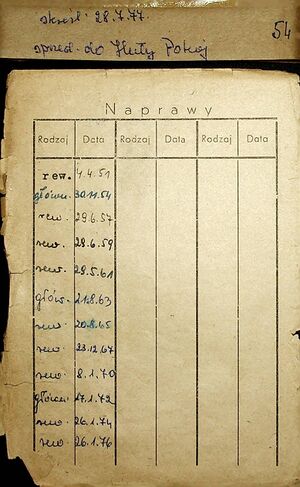 skreśl. 28.7.77.
54
sprzed. do Huty Pokój
Naprawy
Rodzaj Data Rodzaj Data Rodzaj Data
rew. 4.4.51
główn. 30.11.54
rew. 29.6.57
rew. 28.6.59
rew. 29.5.61
głów. 21.8.63
rew. 20.8.65
rew. 23.12.67
rew. 8.1.70
główn. 17.1.72
rew. 26.1.74
rew. 26.1.76